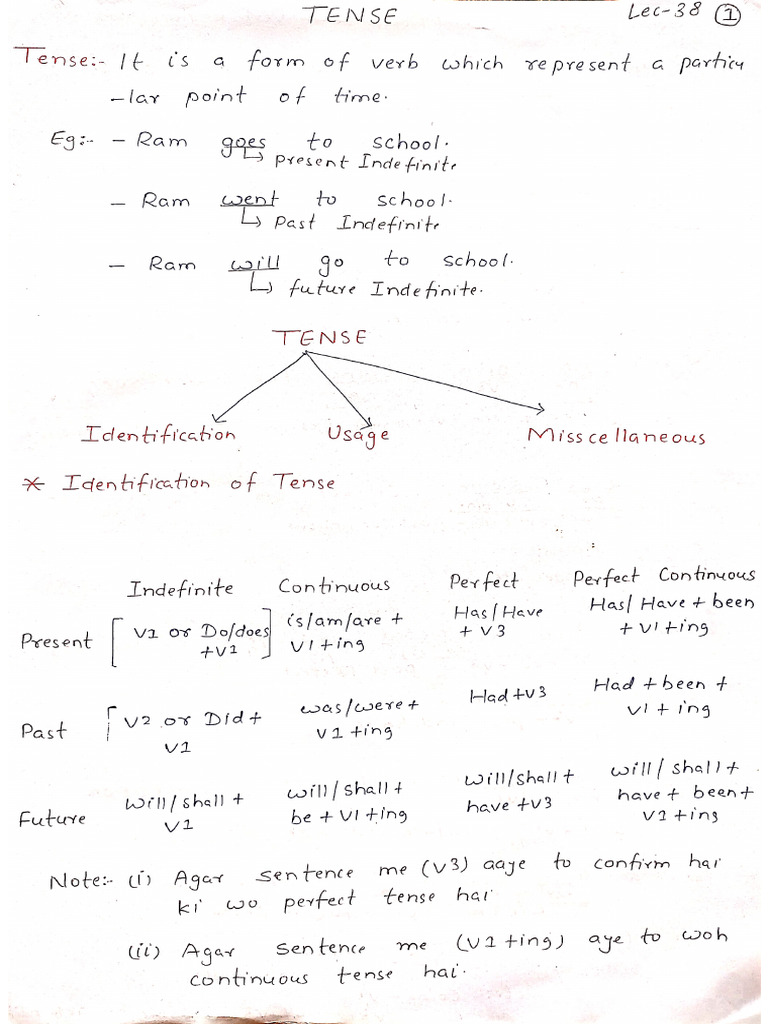 TENSE
Lec-38 (1)
Tense:- It is a form of verb which represent a particu
-lar point of time.
Eg:- - Ram goes to school.
↳ Present Indefinite
- Ram went to school.
↳ Past Indefinite
- Ram will go to school.
↳ future Indefinite.
TENSE
Identification Usage Misscellaneous
* Identification of Tense
Indefinite Continuous Perfect Perfect Continuous
Present [V1 or Do/does is/am/are + Has/Have Has/Have + been
+V1] V1+ing + V3 + V1+ing
Past [V2 or Did+ was/were+ Had+V3 Had + been +
V1 V1+ing V1 + ing
Future will/shall + will/shall + will/shall + will/shall +
V1 be + V1+ing have +V3 have + been +
V1 +ing
Note:- (i) Agar sentence me (V3) aaye to confirm hai
ki wo perfect tense hai
(ii) Agar sentence me (V1+ing) aye to woh
continuous tense hai.